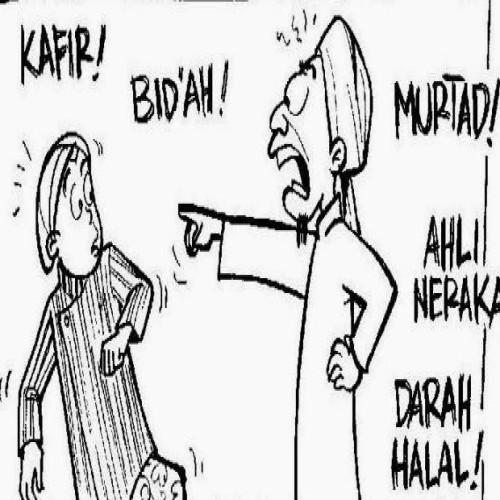 KAFIR!
BID'AH!
MURTAD!
AHLI
NERAKA
DARAH
HALAL!